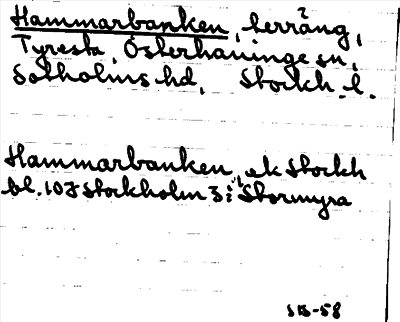 Hammarbanken, terräng,
Tyresta, Österhaninge sn,
Sotholms hd, Stockh. l.
Hammarbanken, ek Stockh
bl. 107 Stockholm 3 i Stormyra
SIB-58